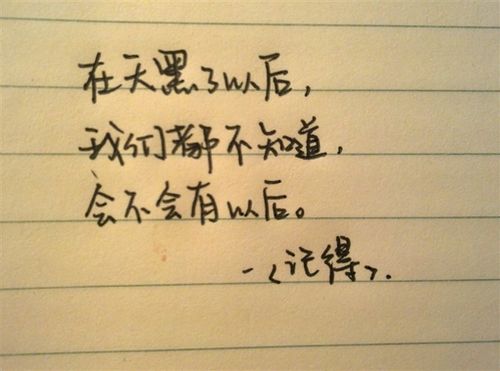 在天黑了以后，
我们都不知道，
会不会有以后。
-<记得>.